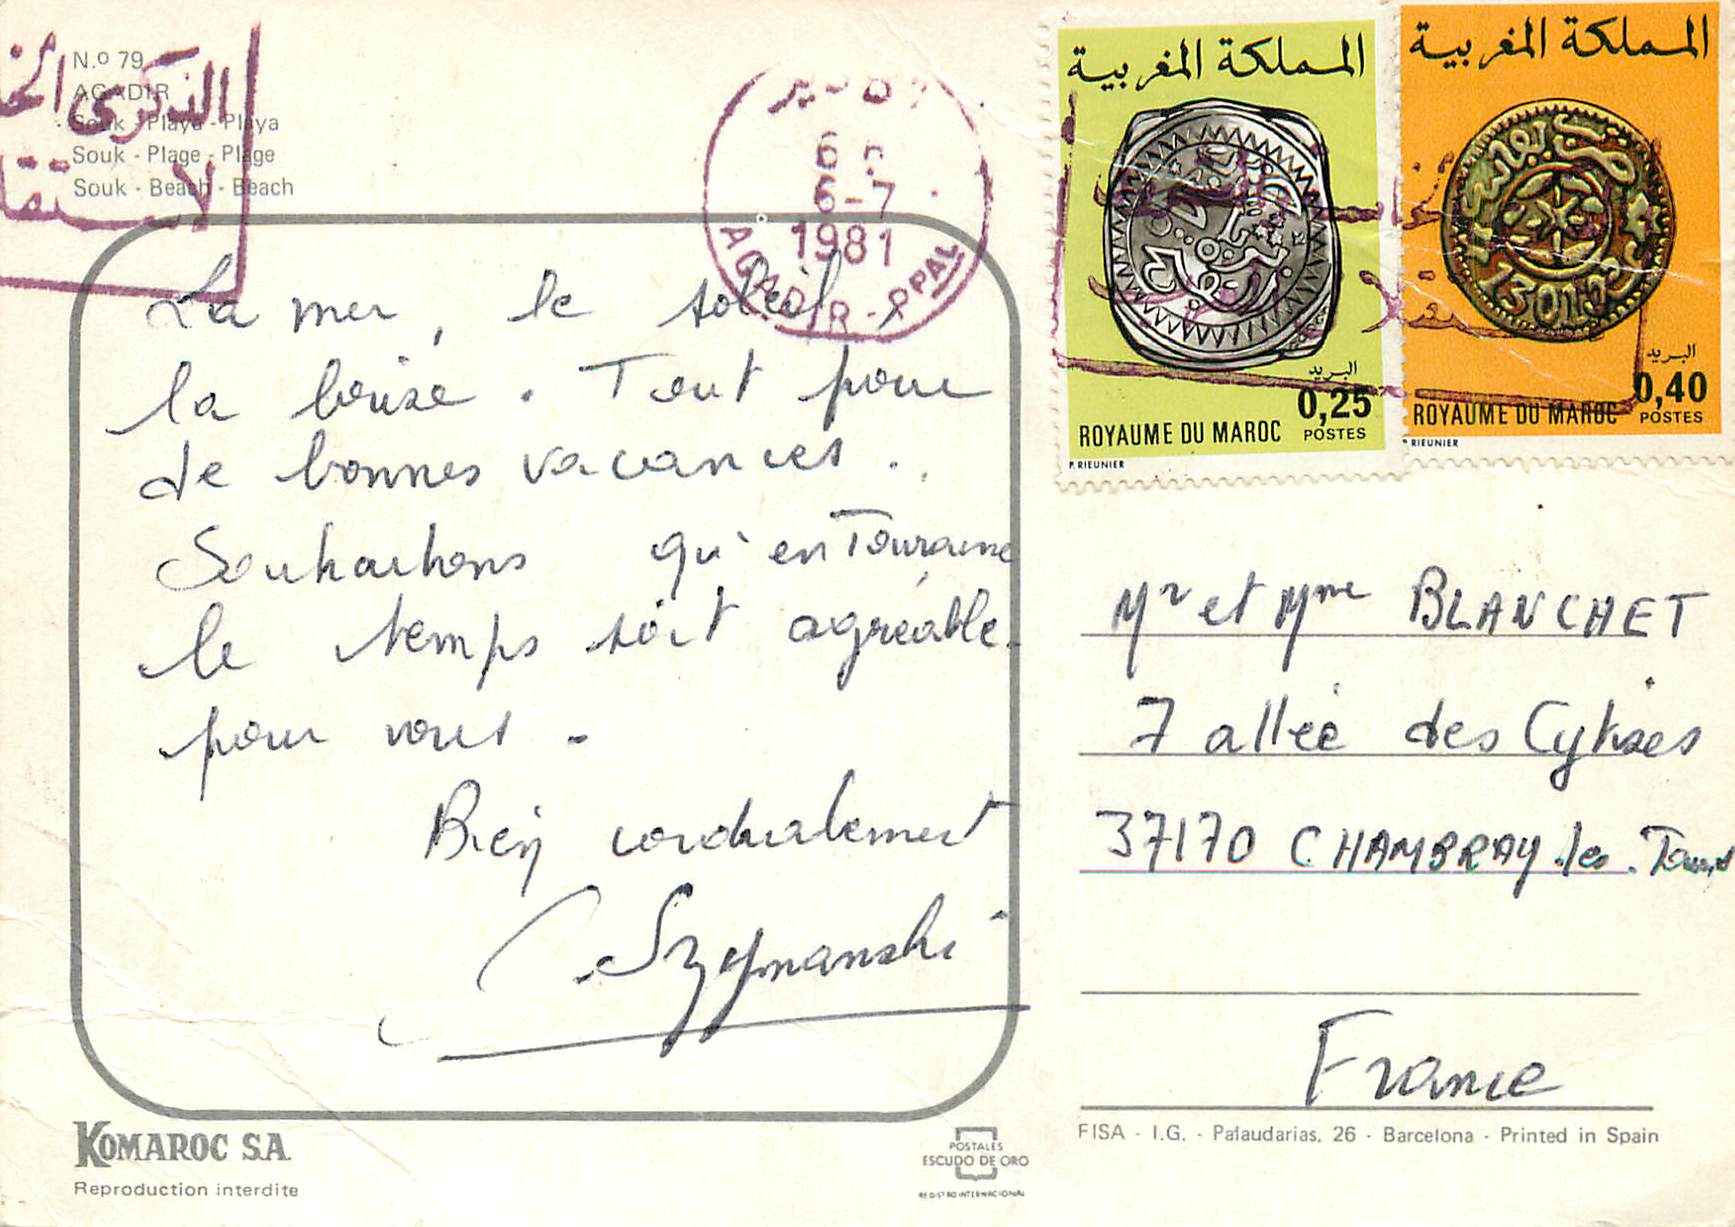 N.º 79
AGADIR
Souk - Playa - Playa
Souk - Plage - Plage
Souk - Beach - Beach
الذكرى
1981
AGADIR - PPAL
المملكة المغربية
البريد
0,25
POSTES
ROYAUME DU MAROC
P. RIEUNIER
المملكة المغربية
البريد
0,40
POSTES
ROYAUME DU MAROC
P. RIEUNIER
La mer, le soleil
la brise. Tout pour
de bonnes vacances..
Souhaitons qu'en Touraine
le temps soit agréable
pour vous.
Bien cordialement
Szymanski
Mr et Mme BLANCHET
7 allée des Cytises
37170 CHAMBRAY les Tours
France
KOMAROC S.A.
Reproduction interdite
POSTALES
ESCUDO DE ORO
REGISTRO INTERNACIONAL
FISA - I.G. - Palaudarias, 26 - Barcelona - Printed in Spain